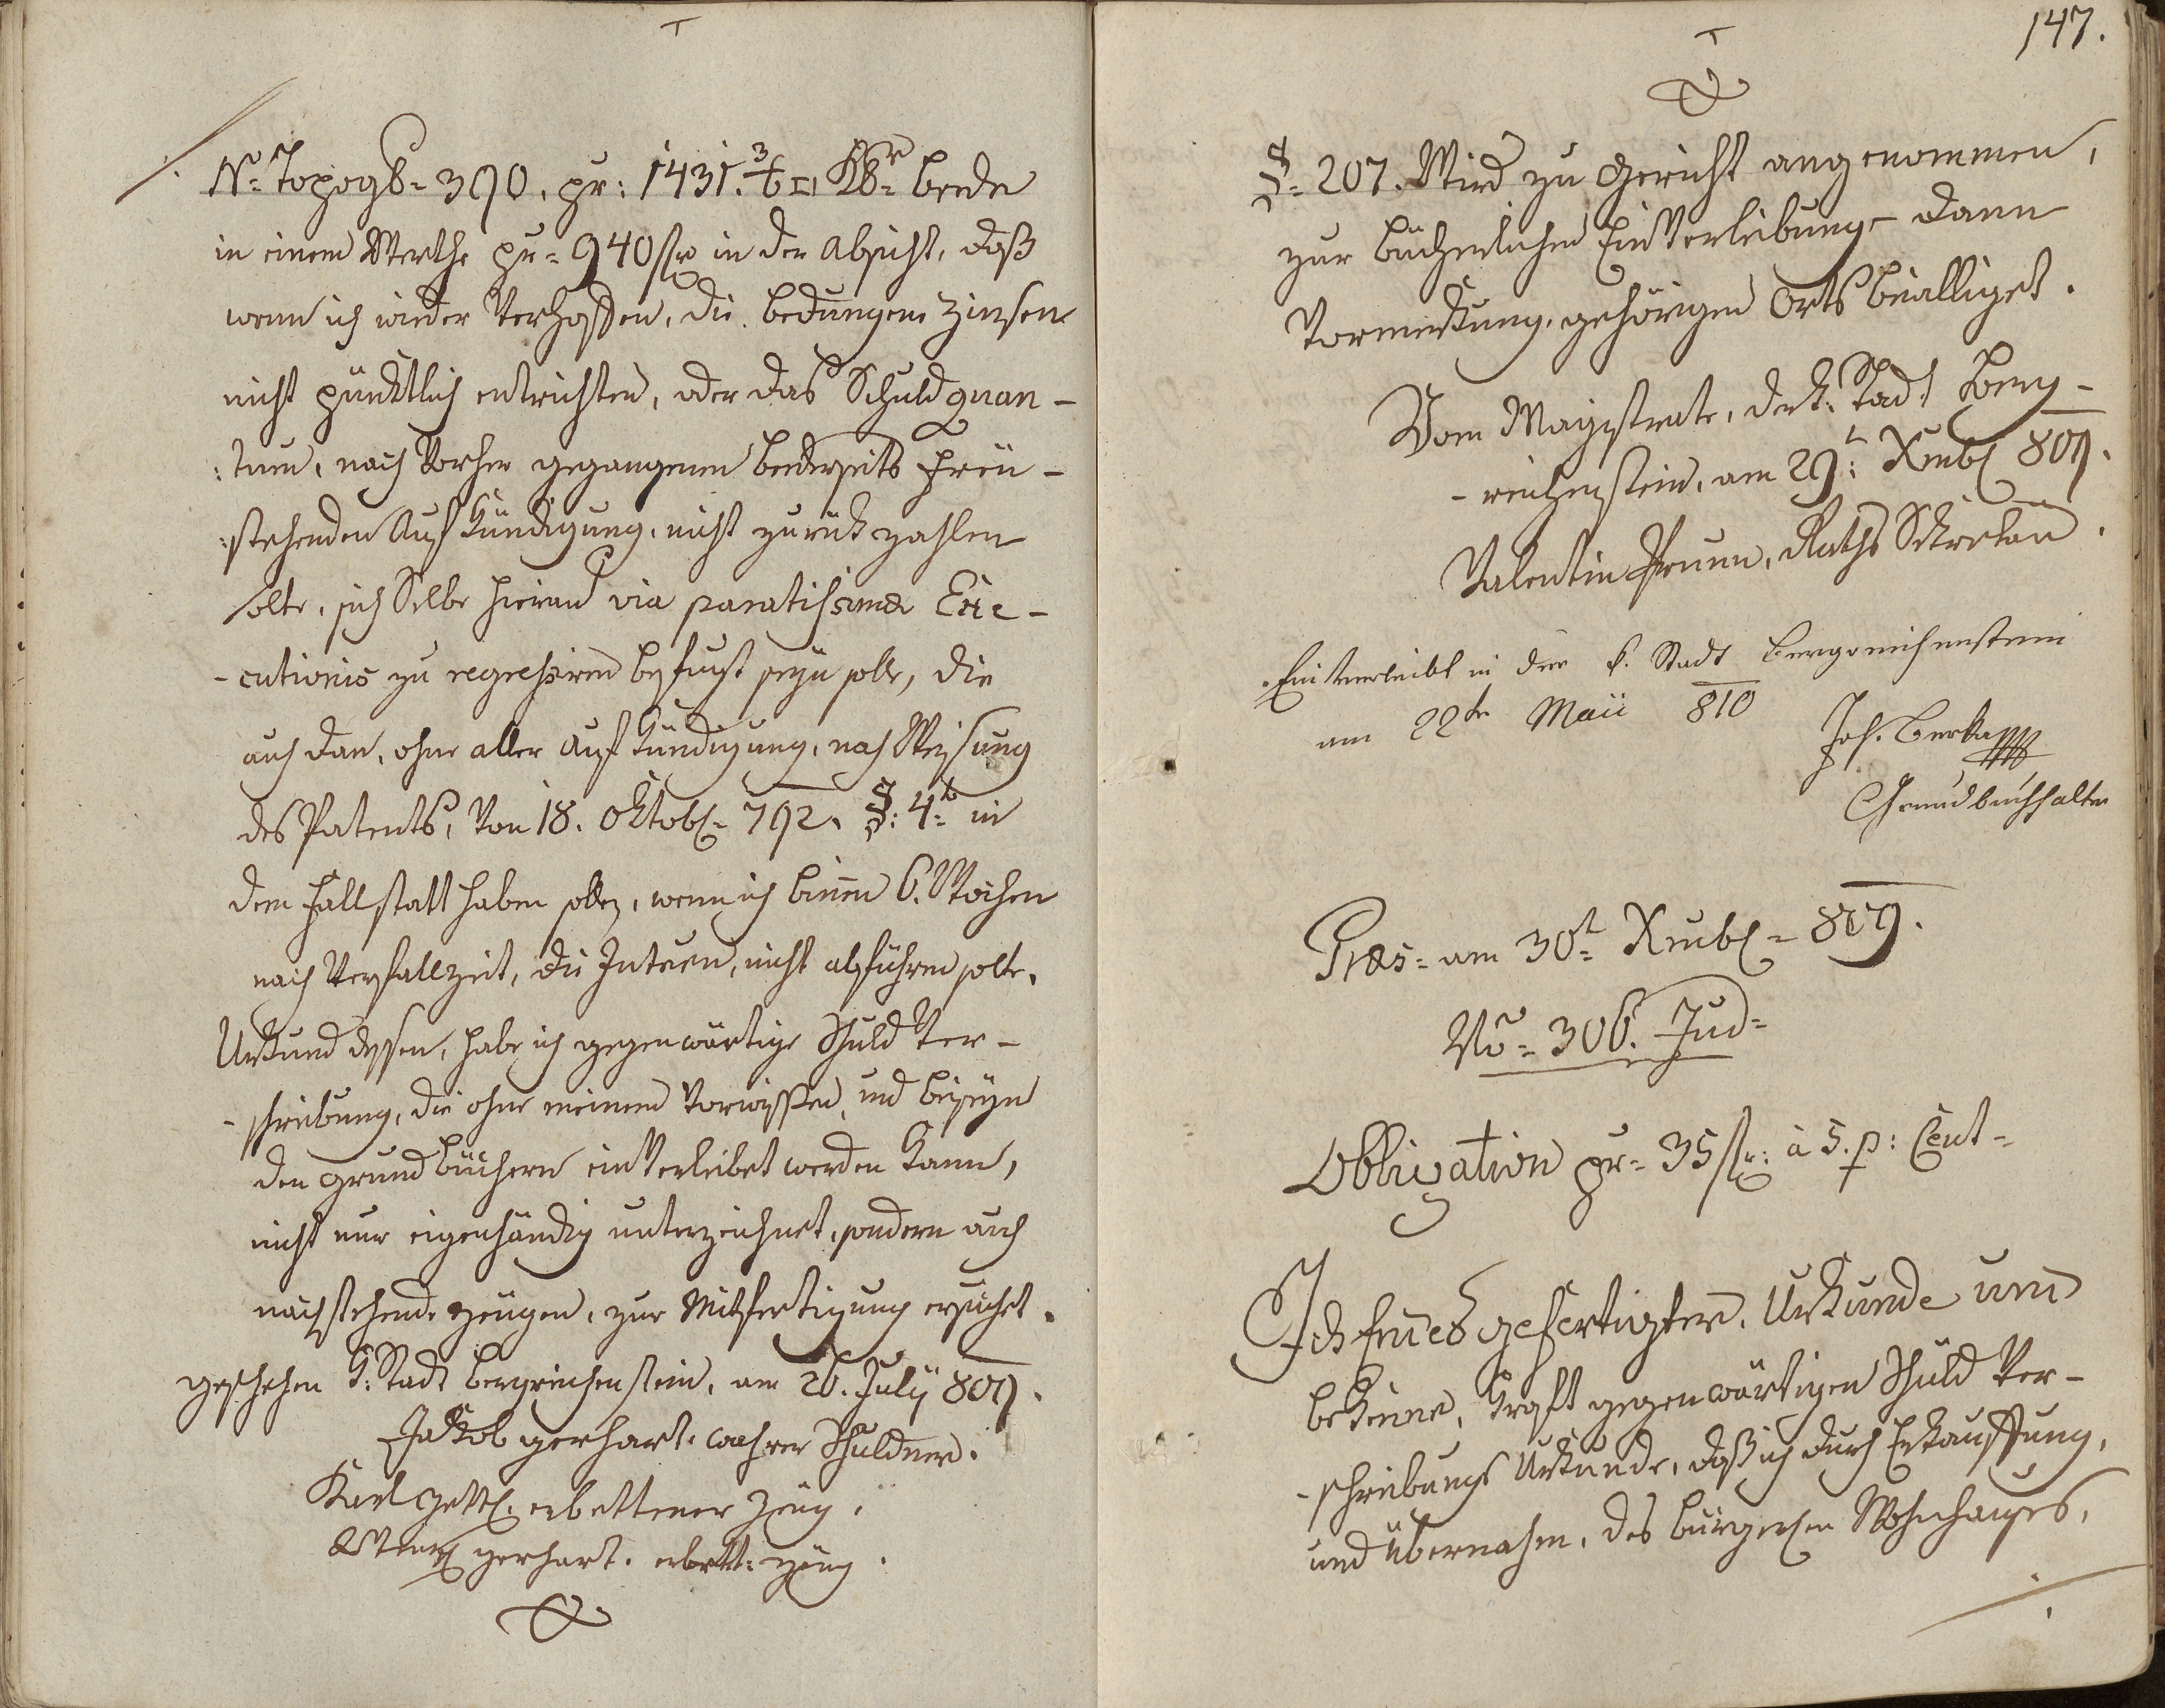 N: Topogb= 390. pr: 1431. □ Klr= beede
in einem Werthe pr= 940 fr in der Absicht, daß
wenn ich wieder Verhoffen, die bedungene Zinsen
nicht pünktlich entrichten, oder das Schuld quan-
:tum, nach Vorher gegangenen beederseits freü-
:stehenden Aufkündigung, nicht zurük zahlen
solte, sich Selbe hieran via paratissimae Exe-
-cutionis zu regressiren befugt seyn solle, die
auch dan, ohne aller Aufkündigung, nach Weisung
des Patents, Von 18. Oktobr= 792. §: 4t= in
dem Fall statt haben solle, wenn ich binen 6. Wochen
nach Verfallzeit, die Intressen, nicht abführen solte.
Urkund dessen, habe ich gegenwärtige Schuld Ver-
-schreibung, die ohne meinem Vorwissen, und beyseyn
den grund büchern einverleibet werden kann,
nicht nur eigenhändig unterzeichnet, sondern auch
nachstehende Zeügen, zur Mitfertigung ersuchet.
geschehen K: Stadt Bergreichenstein, am 26. Julÿ 809.
Jakob gerhart. wahrer Schuldner.
Karl erbettener Zeüg.
gerhart. erbett: Zeüg.
147.
§= 207. Wird zu Gericht angenommen,
zur bücherlichen Einverleibung- dann
Vormerkung, gehörigen Orts bewilliget.
Vom Magistrate, der k: Stadt Berg-
-reichenstein, am 29t: Xembr 809.
Valentin Raths Sekretär.
Einverleibt in der k. Stadt Bergreichenstein
am 22te Maii 810
Jos. Berka
Grundbuchhalter
Præs= am 30t= Xembr= 809.
No= 306. Jud=
Obligation pr= 35 fr: à 5. p: Cent=
Ich Endesgefertigter, Urkunde und
bekenne, Kraft gegenwärtigen Schuld Ver-
-schreibungs Urkunde, daß ich durch Erkauffung,
und Übernahm, des bürgerlichen Wohnhauses,